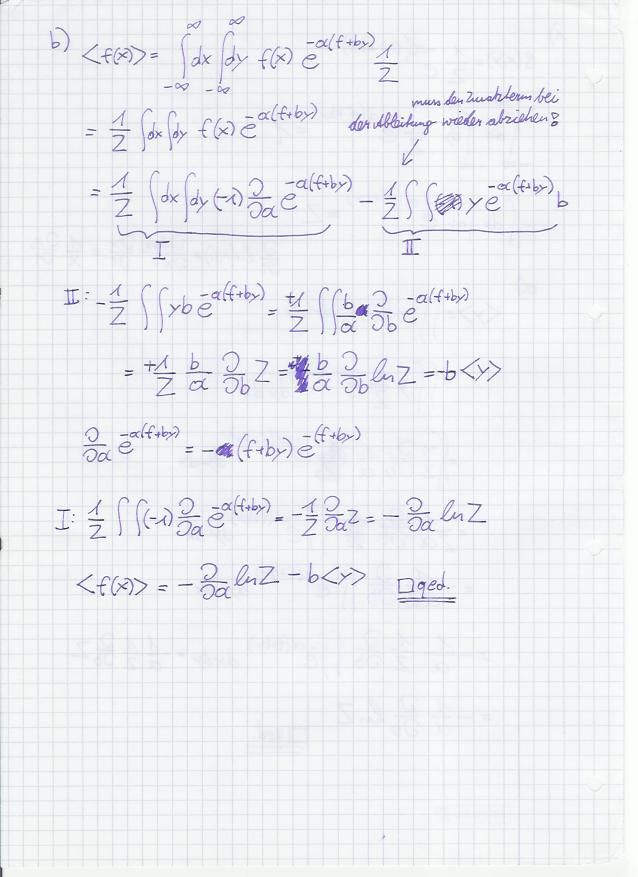 b) <f(x)> = ∫_{-∞}^{∞} dx ∫_{-∞}^{∞} dy f(x) e^{-α(f+by)} 1/Z
muss den Zusatzterm bei
der Ableitung wieder abziehen!
= 1/Z ∫dx∫dy f(x) e^{-α(f+by)}
= 1/Z ∫dx∫dy (-1) ∂/∂α e^{-α(f+by)} - 1/Z ∫∫ y e^{-α(f+by)} b
I II
II: -1/Z ∫∫ yb e^{-α(f+by)} = +1/Z ∫∫ b/α ∂/∂b e^{-α(f+by)}
= +1/Z b/α ∂/∂b Z = + b/α ∂/∂b ln Z = -b <y>
∂/∂α e^{-α(f+by)} = -(f+by) e^{-(f+by)}
I: 1/Z ∫∫(-1) ∂/∂α e^{-α(f+by)} = -1/Z ∂/∂α Z = - ∂/∂α ln Z
<f(x)> = - ∂/∂α ln Z - b <y> □ qed.